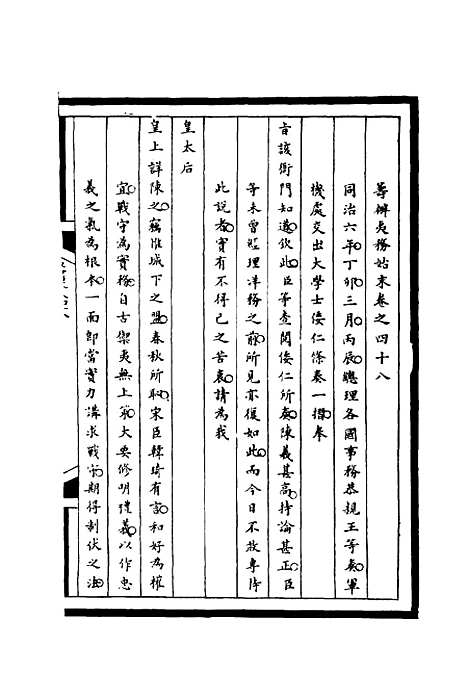 籌辦夷務始末卷之四十八
同治六年丁卯三月丙辰總理各國事務恭親王等奏軍
機處交出大學士倭仁條奏一摺奉
旨該衙門知道欽此臣等查閱倭仁所奏陳義甚高持論甚正臣
等未曾經理洋務之前所見亦復如此而今日不敢專恃
此說者實有不得已之苦衷請為我
皇太后
皇上詳陳之竊惟城下之盟春秋所恥宋臣韓琦有言和好為權
宜戰守為實務自古禦夷無上策大要修明禮義以作忠
義之氣為根本一面卽當實力講求戰守期得制伏之法